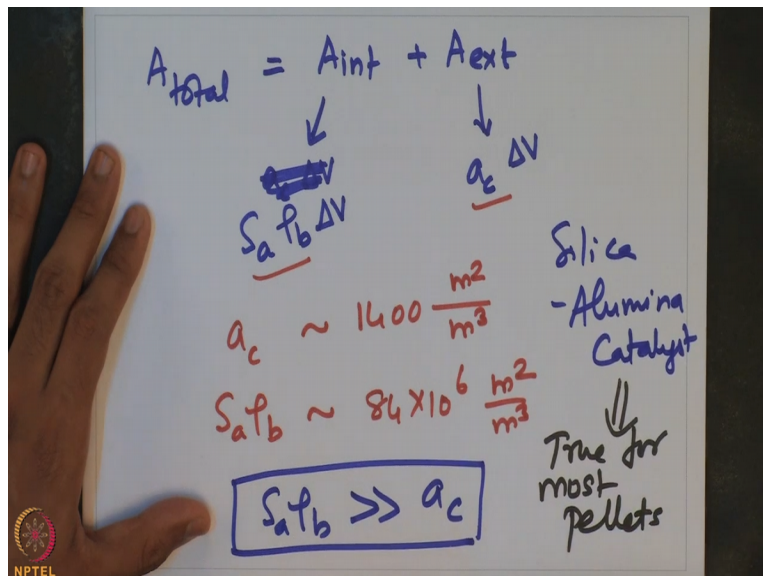 A_total = A_int + A_ext
S_a ρ_b ΔV
a_c ΔV
a_c ~ 1400 m²/m³
S_a ρ_b ~ 84 × 10⁶ m²/m³
S_a ρ_b >> a_c
Silica
- Alumina
Catalyst
⇓
True for
most
pellets
NPTEL